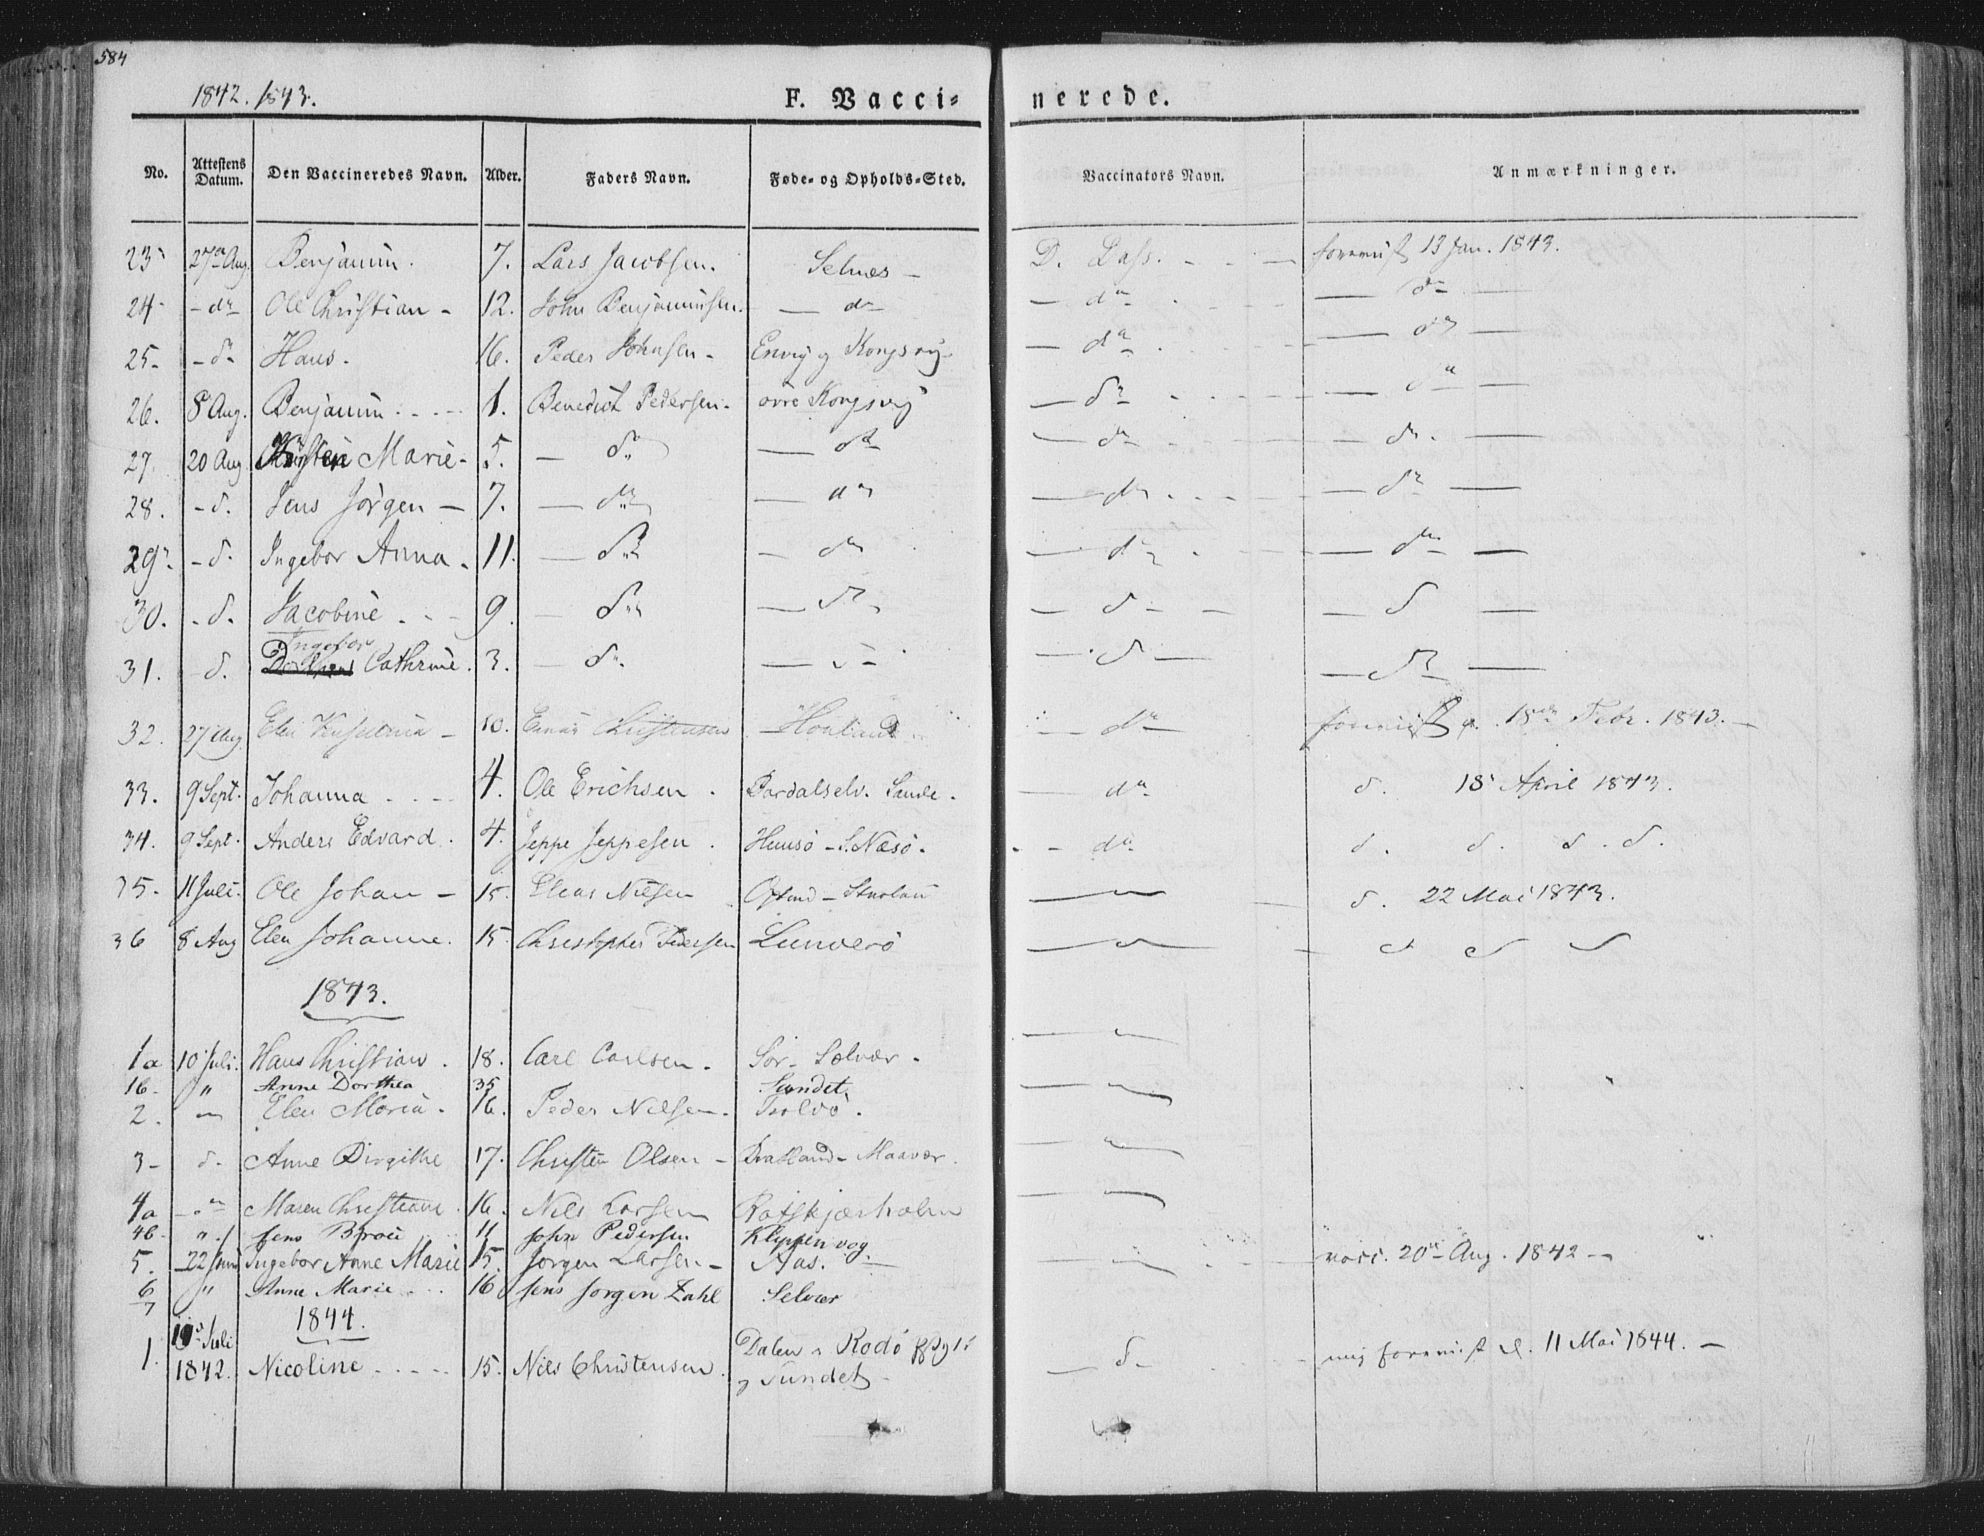 584
1842. 1843.
F. Vacci- nerede.
No. Attestens Datum. Den Vaccineredes Navn. Alder. Faders Navn. Føde- og Opholds-Sted. Vaccinators Navn. Anmærkninger.
23 27de Aug. Benjamin. 7. Lars Jacobsen. Selnes - D. Dass. - - - forevist 13 Jan. 1843.
24 - do Ole Christian - 12. John Benjaminsen. - do - do - do -
25. - do Hans. 16. Peder Johnsen - Envig og Kongsvig - do - do -
26. 8 Aug. Benjamin. - - - 1. Benedict Pedersen. øvre Kongsvig - do - do -
27. 20 Aug Marie - 5. - do - do - do - do. -
28. - d. Jens Jørgen - 7. - do - do - do - do -
29. - d. Ingebor Anna. 11. - do - do - do - do -
30. - d. Jacobine - - 9. - do - do - d - - d -
31. - d. Ingebor Cathrine. 3. - do - d - - d - - do -
32. 27 Aug Elen - 10. Christensen do forevist 18de Febr. 1843. -
33. 9 Sept. Johanna - - - 4. Ole Erichsen. Bardalselv. Sande. do d. 18 April 1843.
34. 9 Sept. Anders Edvard. 4. Jeppe Jeppesen. Huusø - S. Næsø. - do d. d. d. d.
35. 11 Juli. Ole Johan - 15. Elias Nilsen - d. 22 Mai 1843.
36 8 Aug Elen Johanne. 15. Christopher Pedersen Lunderø
1843.
1a 10 Juli. Hans Christian. 18. Carl Carlsen. Sør-Sælvær.
1b. " Anne Dorthea 35 Sundet.
2. Elen Maria. 16. Peder Nilsen. Tholvø.
3 - d. Anne Birgithe 17. Christen Olsen - Bratland - Maavær.
4a Maren Christiane. 16. Nils Larsen Ratskjærholm
4b. " Jens 11 John Pedersen Klyppenvog
5. 22 Juni Ingebor Anne Marie 15. Jørgen Larsen - Aas. - vacc. 20de Aug. 1842 -
6 " Anne Marie - - - 16 Jens Jørgen Zahl Selvær
7
1844.
1. 10 Juli 1842. Nicoline - - - - 15. Nils Christensen. Dalen i Rodø
og Sundet - - d - mig forevist d. 11 Mai 1844. -